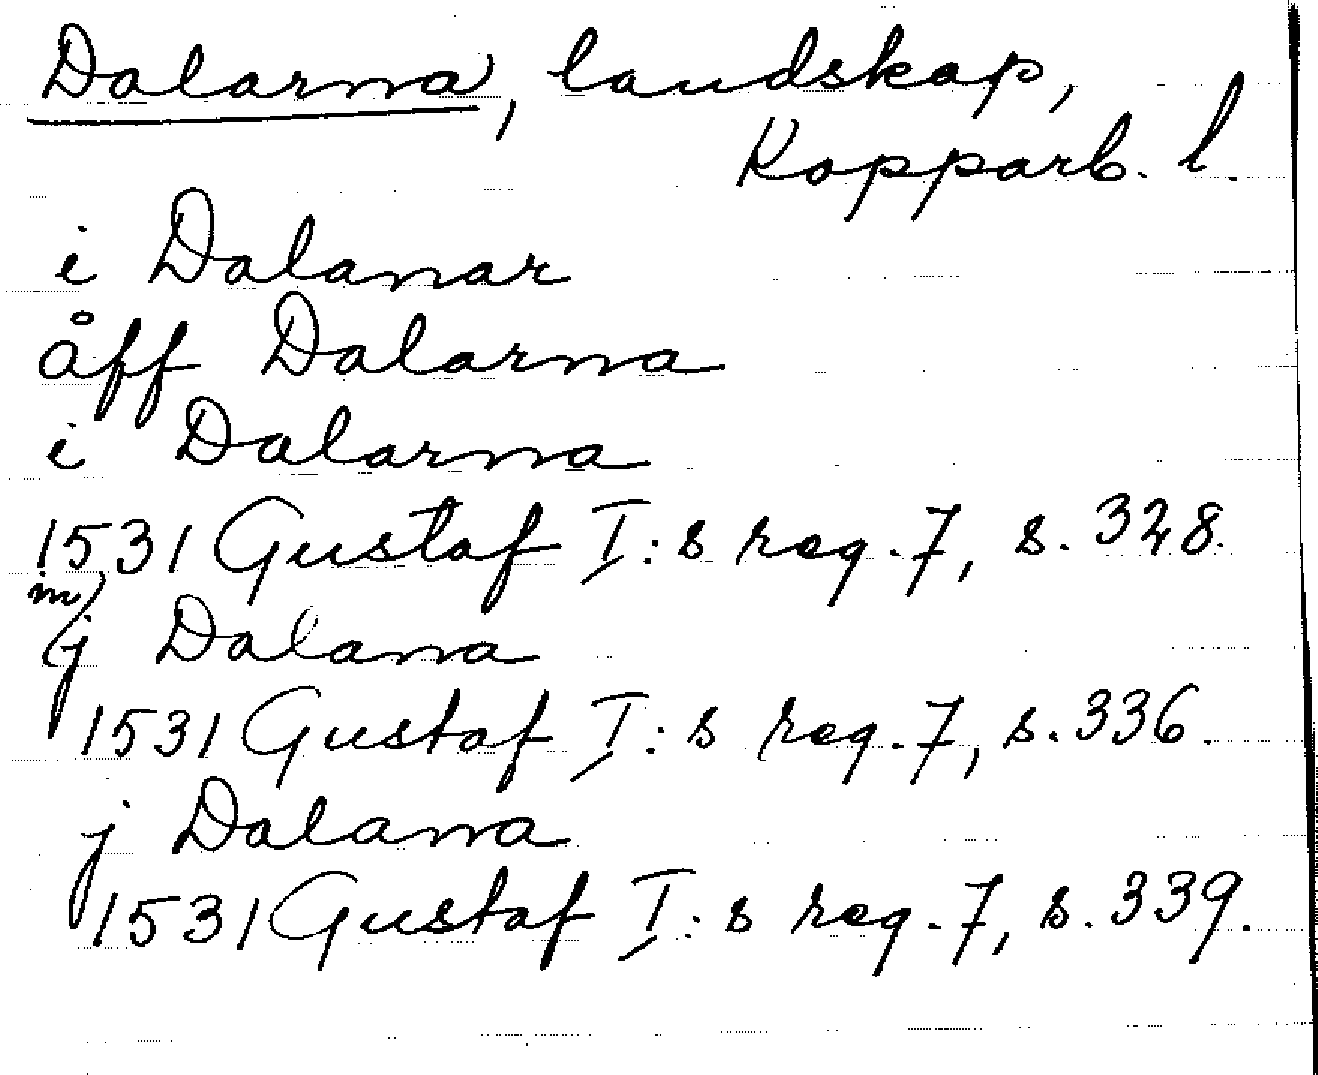 Dalarna, landskap,
Kopparb. l.
i Dalanar
åff Dalarna
i Dalarna
1531 Gustaf I:s reg. 7, s. 328.
m)
(j Dalana
1531 Gustaf I:s reg. 7, s. 336.
j Dalana
1531 Gustaf I:s reg. 7, s. 339.